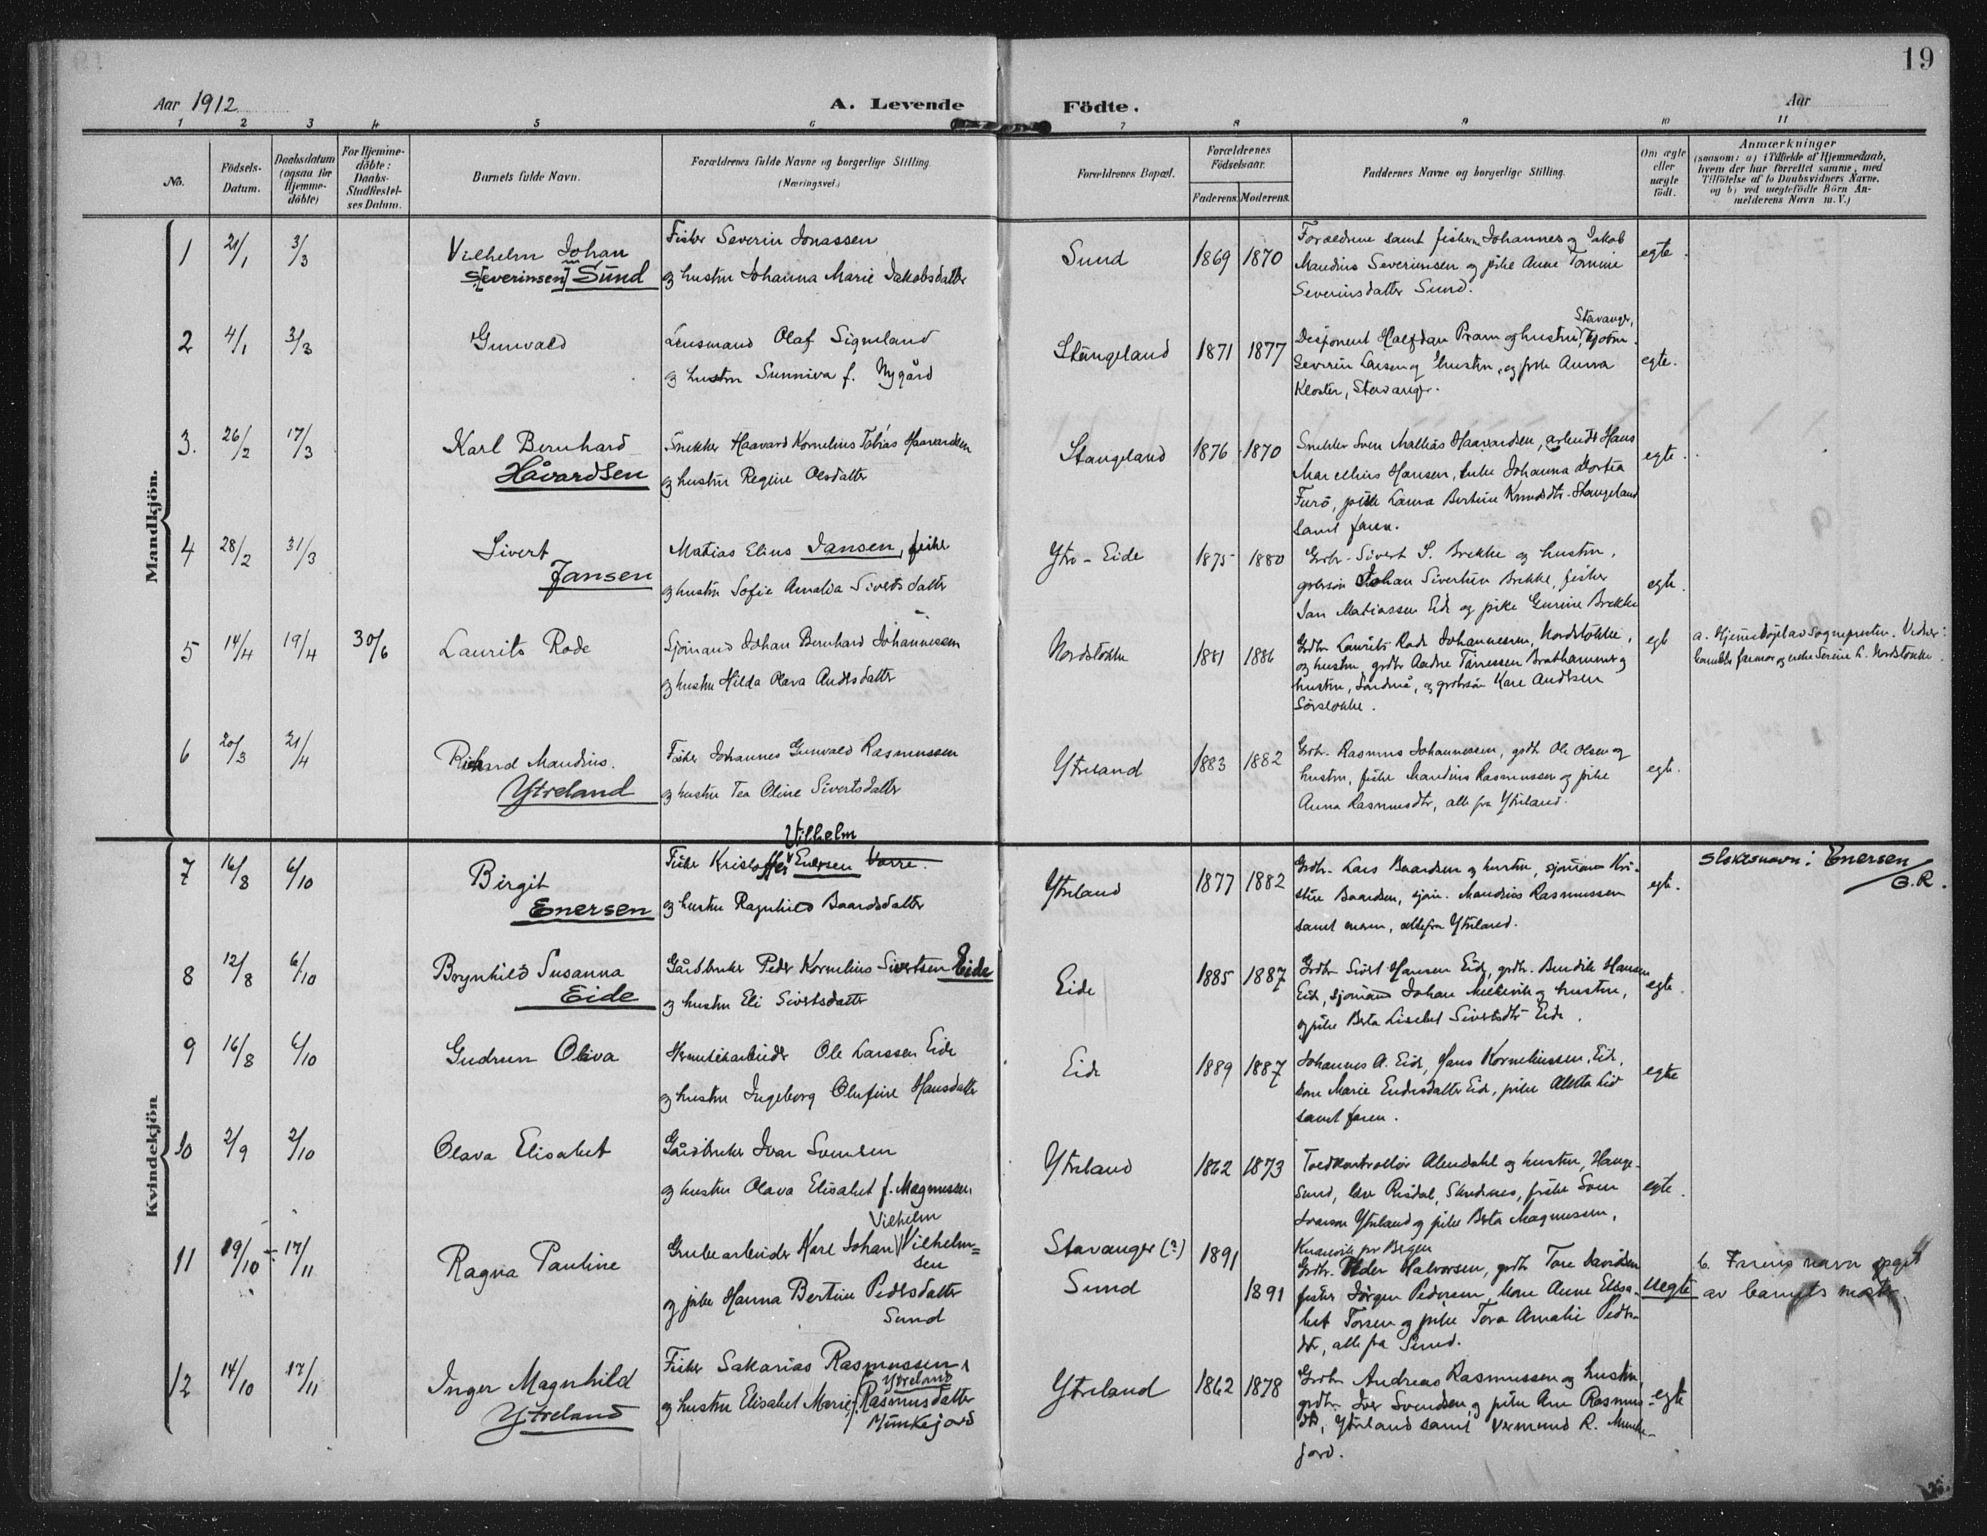 19
Aar 1912
A. Levende
Födte.
Aar
1 2 3 4 5 6 7 8 9 10 11
No.
Födsels-
Datum.
Daabsdatum
(ogsaa for
Hjemme-
döbte)
For Hjemme-
döbte:
Daabs-
Stadfæstel-
ses Datum.
Barnets fulde Navn.
Forældrenes fulde Navne og borgerlige Stilling.
(Næringsvei.)
Forældrenes Bopæl.
Forældrenes
Födselsaar.
Faderens. Moderens.
Faddernes Navne og borgerlige Stilling.
Om ægte
eller
uægte
födt.
Anmærkninger
(saasom: a) i Tilfælde af Hjemmedaab,
hvem der har forrettet samme, med
Tilföielse af to Daabsvidners Navne,
og b) ved uegtefödte Börn An-
melderens Navn m. V.)
Mandkjön.
1 21/1 3/3
Vilhelm Johan
[Severinsen] Sund
Fisker Severin Jonassen
og hustru Johanna Marie Jakobsdatter
Sund 1869 1870
Forældrene samt fiskerne Johannes og Jakob
Maudius Severinsen og pike Anne Tomine
Severinsdatter Sund.
egte.
2 4/1 3/3
Gunvald
Lensmand Olaf Signeland
og hustru Sunniva f. Nygård
Stangeland 1871 1877
Stavanger,
Disponent Halfdan Pram og hustru,
Severin Larsen og hustru, og frk. Anna
Kloster, Stavanger.
egte.
3. 26/2 17/3
Karl Bernhard
Håvardsen
Snekker Haavard Kornelius Tobias Haavardsen
og hustru Regine Olsdatter
Stangeland 1876 1870
Snekker Sven Mathias Haavardsen, arbeider Hans
Marcelius Hansen, enke Johanna Dortea
Furö, pike Laura Bertine Knudsdtr. Stangeland
samt faren.
egte.
4 28/2 31/3
Sivert
Jansen
Matias Elius Jansen, fisker
og hustru Sofie Amalia Sivertsdatter
Ytre-Eide 1875 1880
Grdbr. Sivert S. Brekke og hustru,
grdbrsön Johan Sivertsen Brekke, fisker
Jan Matiassen Eide og pike Gurine Brekke
egte.
5 14/4 19/4 30/6
Laurits Rode
Sjömand Johan Bernhard Johannessen
og hustru Hilda Olava Andrsdatter
Nordstokke 1881 1886
Grdbr. Laurits Rode Johannessen, Nordstokke,
og hustru, grdbr Andre Tönnessen Brathammer og
hustru, Sandnes, og grdbrsön Kare Andersen
Sörstokke.
egte
a. Hjemmedöpt av sognepresten. Vidner:
barnets farmor og enke Serine L. Nordstokke.
6 20/3 21/4
Rikard Maudius.
Ytreland
Fisker Johannes Gunvald Rasmussen
og hustru Tea Oline Sivertsdatter
Ytreland 1883 1882
Grdbr. Rasmus Johannessen, grdbr. Ole Olsen og
hustru, fisker Maudius Rasmussen og pike
Anna Rasmusdtr, alle fra Ytreland.
egte.
Kvindekjön
7 16/8 6/10
Birgit
Enersen
Vilhelm
Fisker Kristoffer Enersen Varre
og hustru Ragnhild Baardsdatter
Ytreland 1877 1882
Grdbr. Lars Baardsen og hustru, sjömand Kri-
stine Baardsen, sjöm. Maudius Rasmussen
samt moren, alle fra Ytreland.
egte.
Slektsnavn: Enersen
/ G.R.
8 12/8 6/10
Borgnhild Susanna
Eide
Gårdbruker Peder Kornelius Sivertsen Eide
og hustru Eli Sivertsdatter
Eide 1885 1887
Grdbr Sivert Hansen Eide, grdbr. Bendik Hansen
Eide, sjömand Johan Mellevik og hustru,
og pike Berta Lisebet Sivertsdtr Eide.
egte.
9 16/8 6/10
Gudrun Oliva
Hermetikarbeider Ole Larssen Eide
og hustru Ingeborg Olufine Hansdatter
Eide 1889 1887
Johannes A. Eide, Hans Korneliussen Eide,
kone Marie Endresdatter Eide, pike Aletta Lid
samt faren.
egte
10 2/9 2/10
Olava Elisabet
Gårdbruker Ivar Svensen
og hustru Olava Elisabet f. Magnussen
Ytreland 1862 1873
Toldkontrollör Alendahl og hustru, Hauge-
sund, Risdal, Skudenes, fisker Sven
Ivarson Ytreland og pike Berta Magnussen,
Knarvik pr Bergen
egte.
11 19/10 17/11
Ragna Pauline
Vilhelm
Grubearbeider Karl Johan Vilhelm=
sen
og pike Hanna Bertine Pedersdatter
Sund
Stavanger (?) 1891
Sund 1891
Grdbr. Peder Halvorsen, grdbr Tore Davidsen
fisker Jörgen Pedersen, kone Anne Elisa-
bet Torsen og pike Tora Amalie Peders-
dtr, alle fra Sund.
Uegte
b. Farens navn opgit
av barnets mor.
12 14/10 17/11
Inger Magnhild
Ytreland
Fisker Sakarias Rasmussen
Ytreland
og hustru Elisabet Marie f. Rasmusdatter
Munkejord
Ytreland 1862 1878
Grdbr Andreas Rasmussen og hustru,
grdbr. Iver Svendsen og pike Ane Rasmus-
dtr, Ytreland samt Vermund R. Munke-
jord.
egte